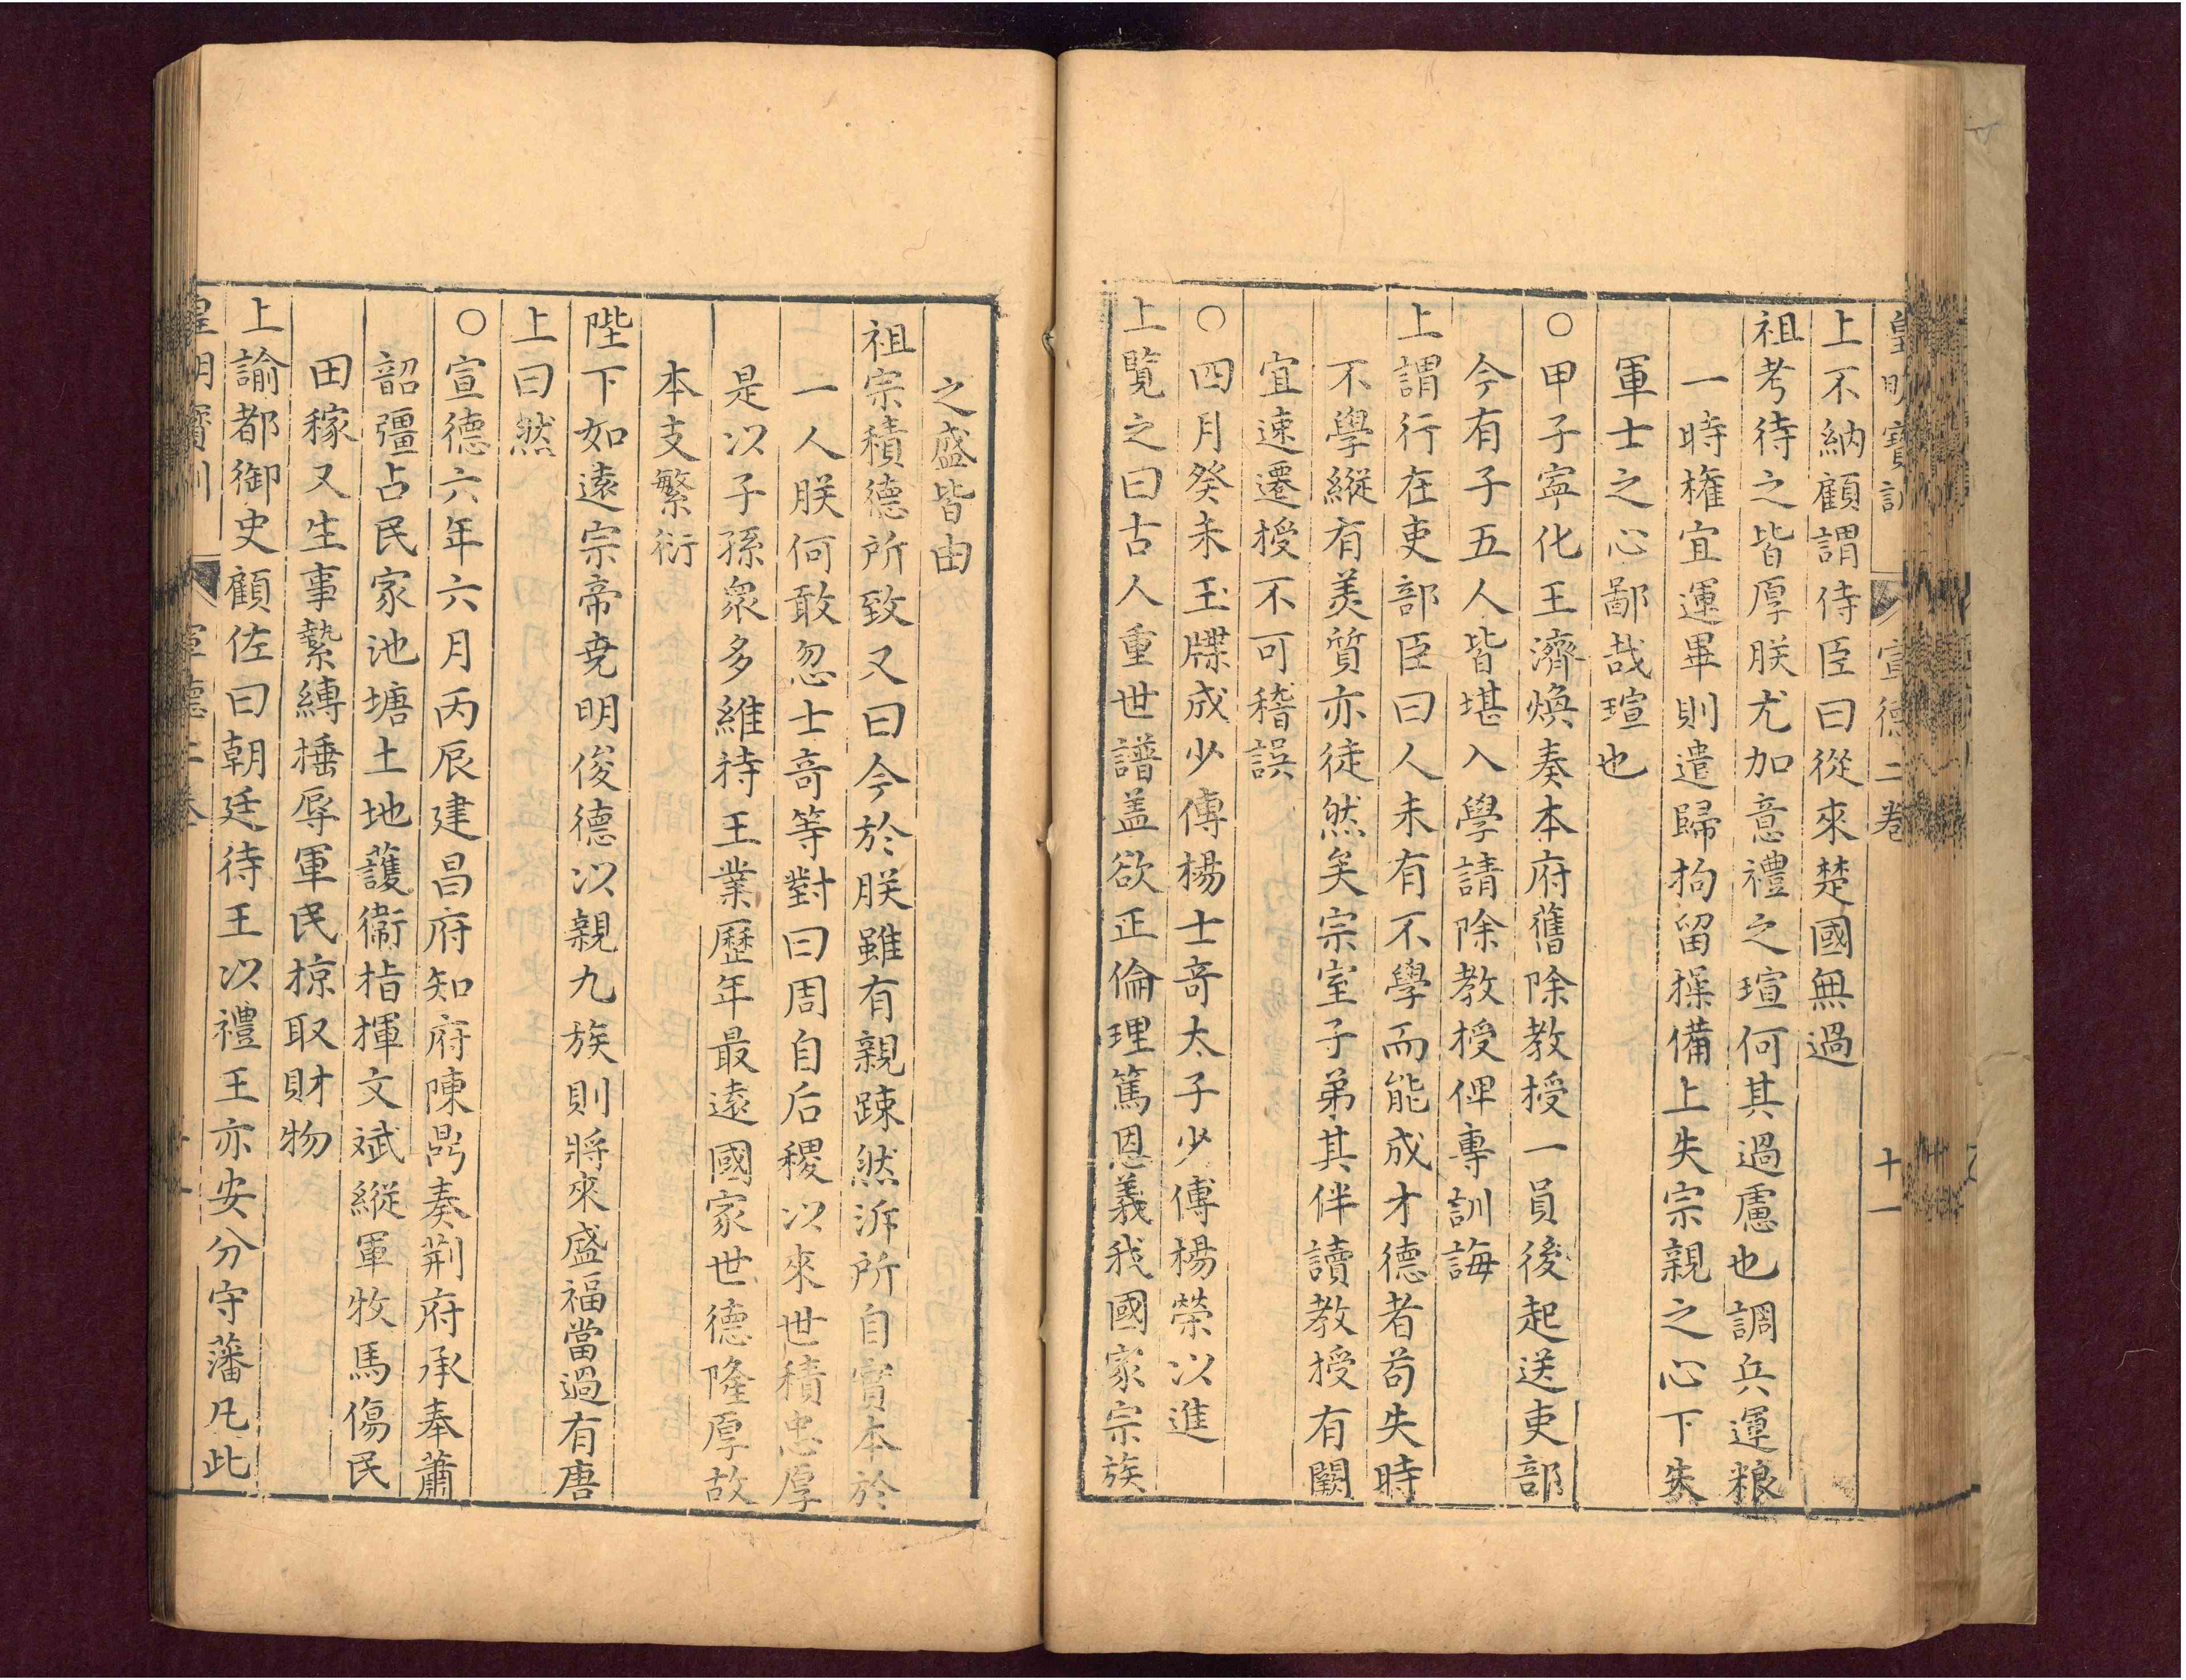 皇明寶訓 宣德二卷 十一
上不納顧謂侍臣曰從來楚國無過
祖考待之皆厚朕尤加意禮之瑄何其過慮也調兵運粮
一時權宜運畢則遣歸拘留操備上失宗親之心下失
軍士之心鄙哉瑄也
○甲子寧化王濟煥奏本府舊除教授一員後起送吏部
今有子五人皆堪入學請除教授俾專訓誨
上謂行在吏部臣曰人未有不學而能成才德者苟失時
不學縱有美質亦徒然矣宗室子弟其伴讀教授有闕
宜速遷授不可稽誤
○四月癸未玉牒成少傅楊士奇太子少傅楊榮以進
上覽之曰古人重世譜盖欲正倫理篤恩義我國家宗族
之盛皆由
祖宗積德所致又曰今於朕雖有親踈然泝所自實本於
一人朕何敢忽士竒等對曰周自后稷以來世積忠厚
是以子孫衆多維持王業歷年最遠國家世德隆厚故
本支繁衍
陛下如遠宗帝堯明俊德以親九族則將來盛福當過有唐
上曰然
○宣德六年六月丙辰建昌府知府陳鼎奏荆府承奉蕭
韶彊占民家池塘土地護衞指揮文斌縱軍牧馬傷民
田稼又生事縶縛捶辱軍民掠取財物
上諭都御史顧佐曰朝廷待王以禮王亦安分守藩凡此
皇明寳訓 宣德二卷